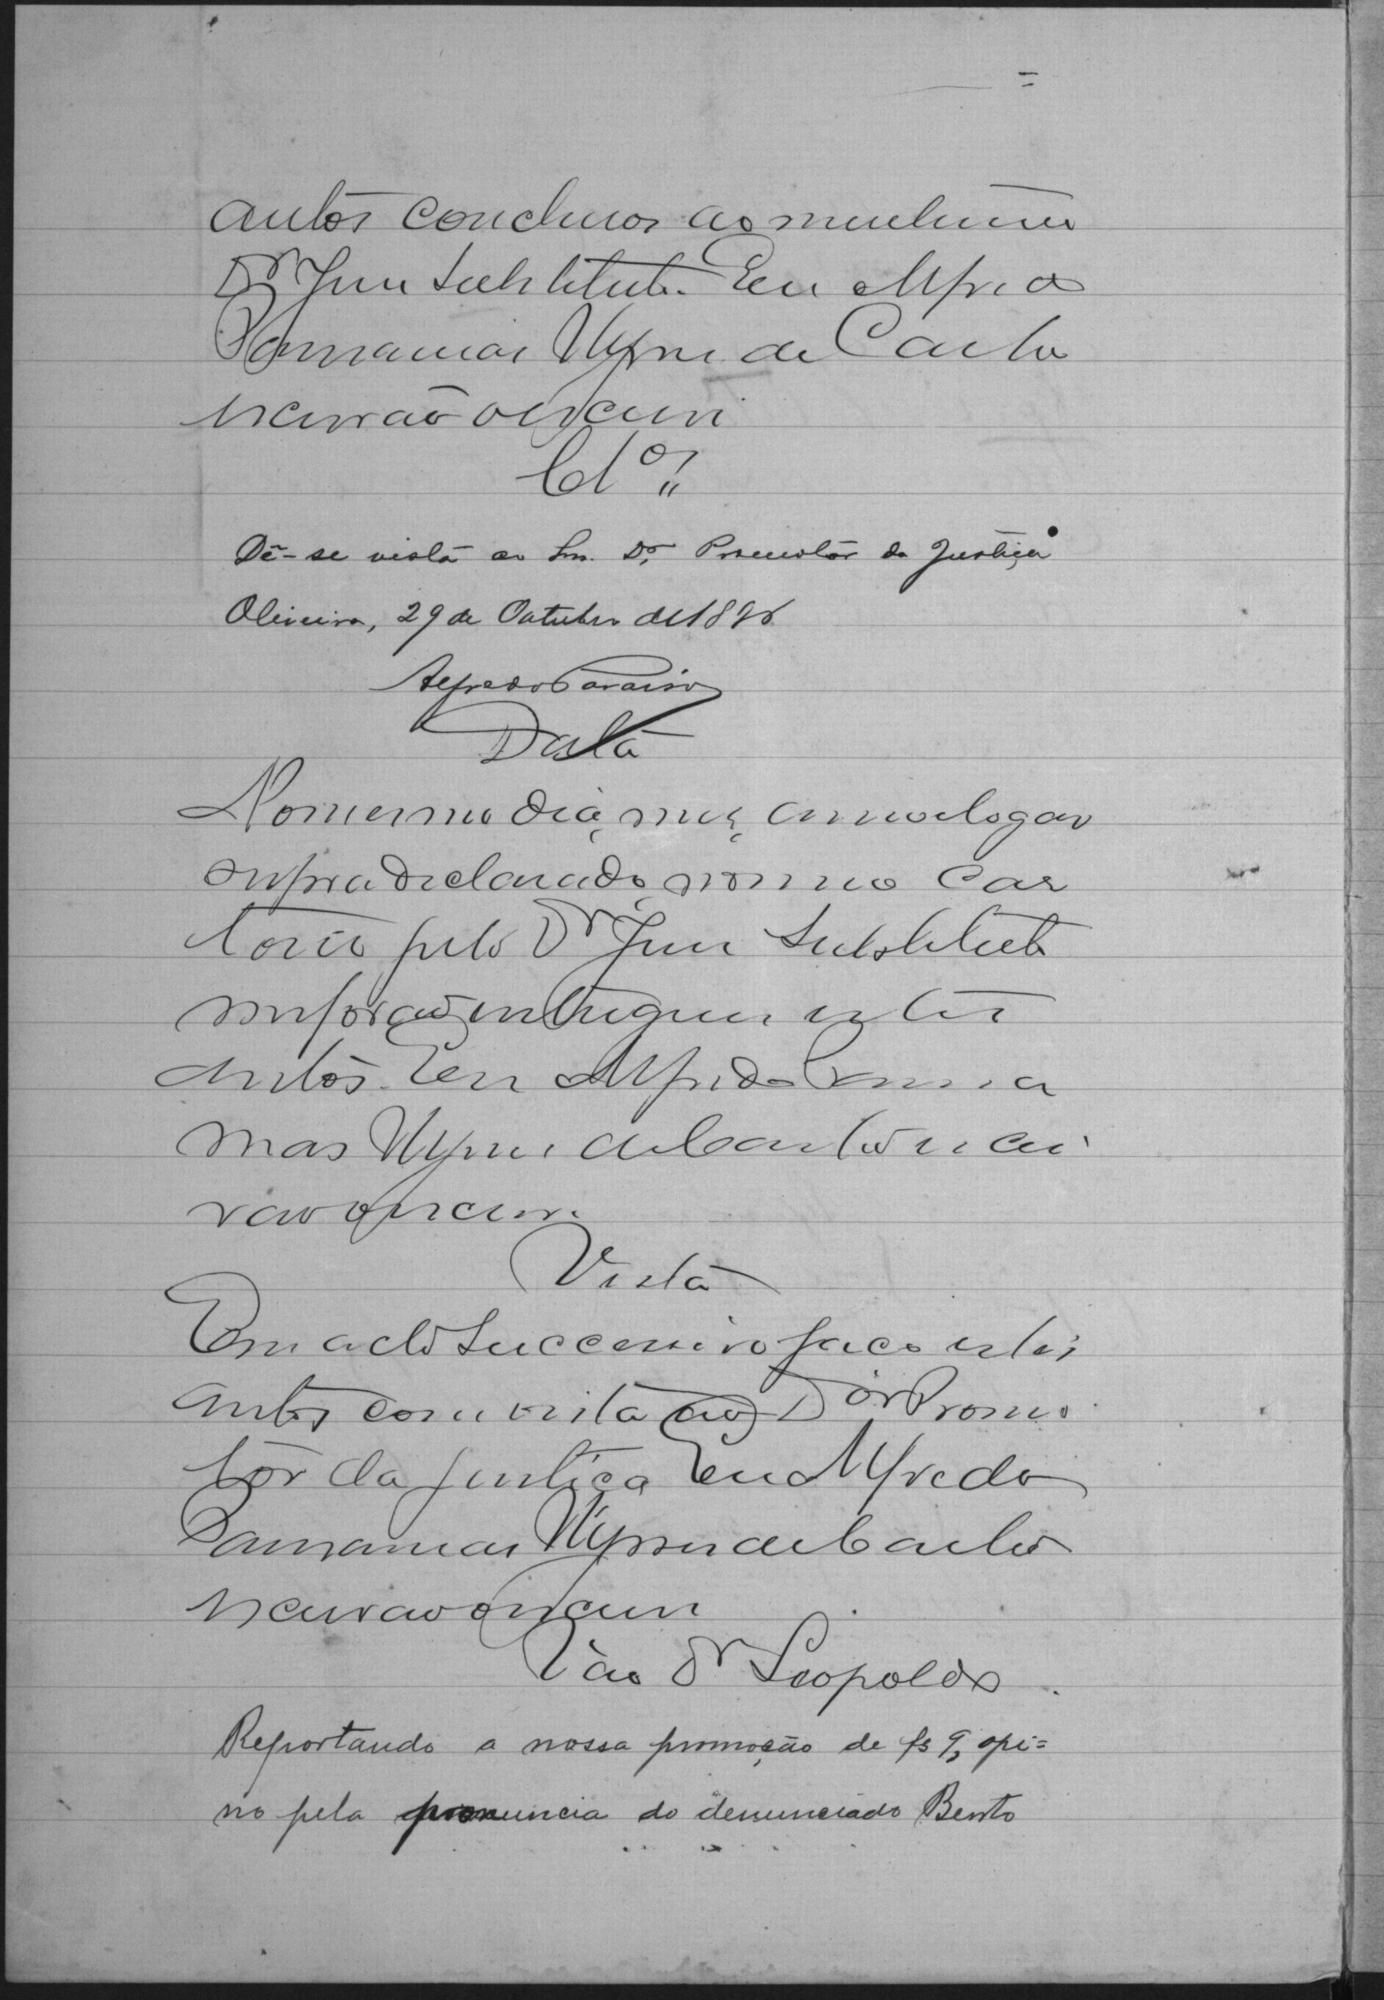 autos conclusos ao meritissimo
Dr Juiz Substituto. Eu Alfredo
de Casto
escrivão o escrevi
Cl.os
Dê-se vista ao Snr. Dr. Promotor da Justiça
Oliveira, 29 de Outubro de 1896
Alfredo Paraiso
Data
No mesmo dia, mez, anno e logar
supra declarado, em meo Car
torio pelo Dr Juiz Substituto
me forão entregues estes
autos. Eu Alfredo
de Castro escri
vão o escrevi.
Vista
Em acto successivo faço estes
autos com vista ao Dor Promo
tor da Justiça Eu Alfredo
de Casto
escrivão o escrevi
V ao Dr Leopoldo
Reportando a nossa promoção de fs 9, opi=
no pela pronuncia do denunciado Bento